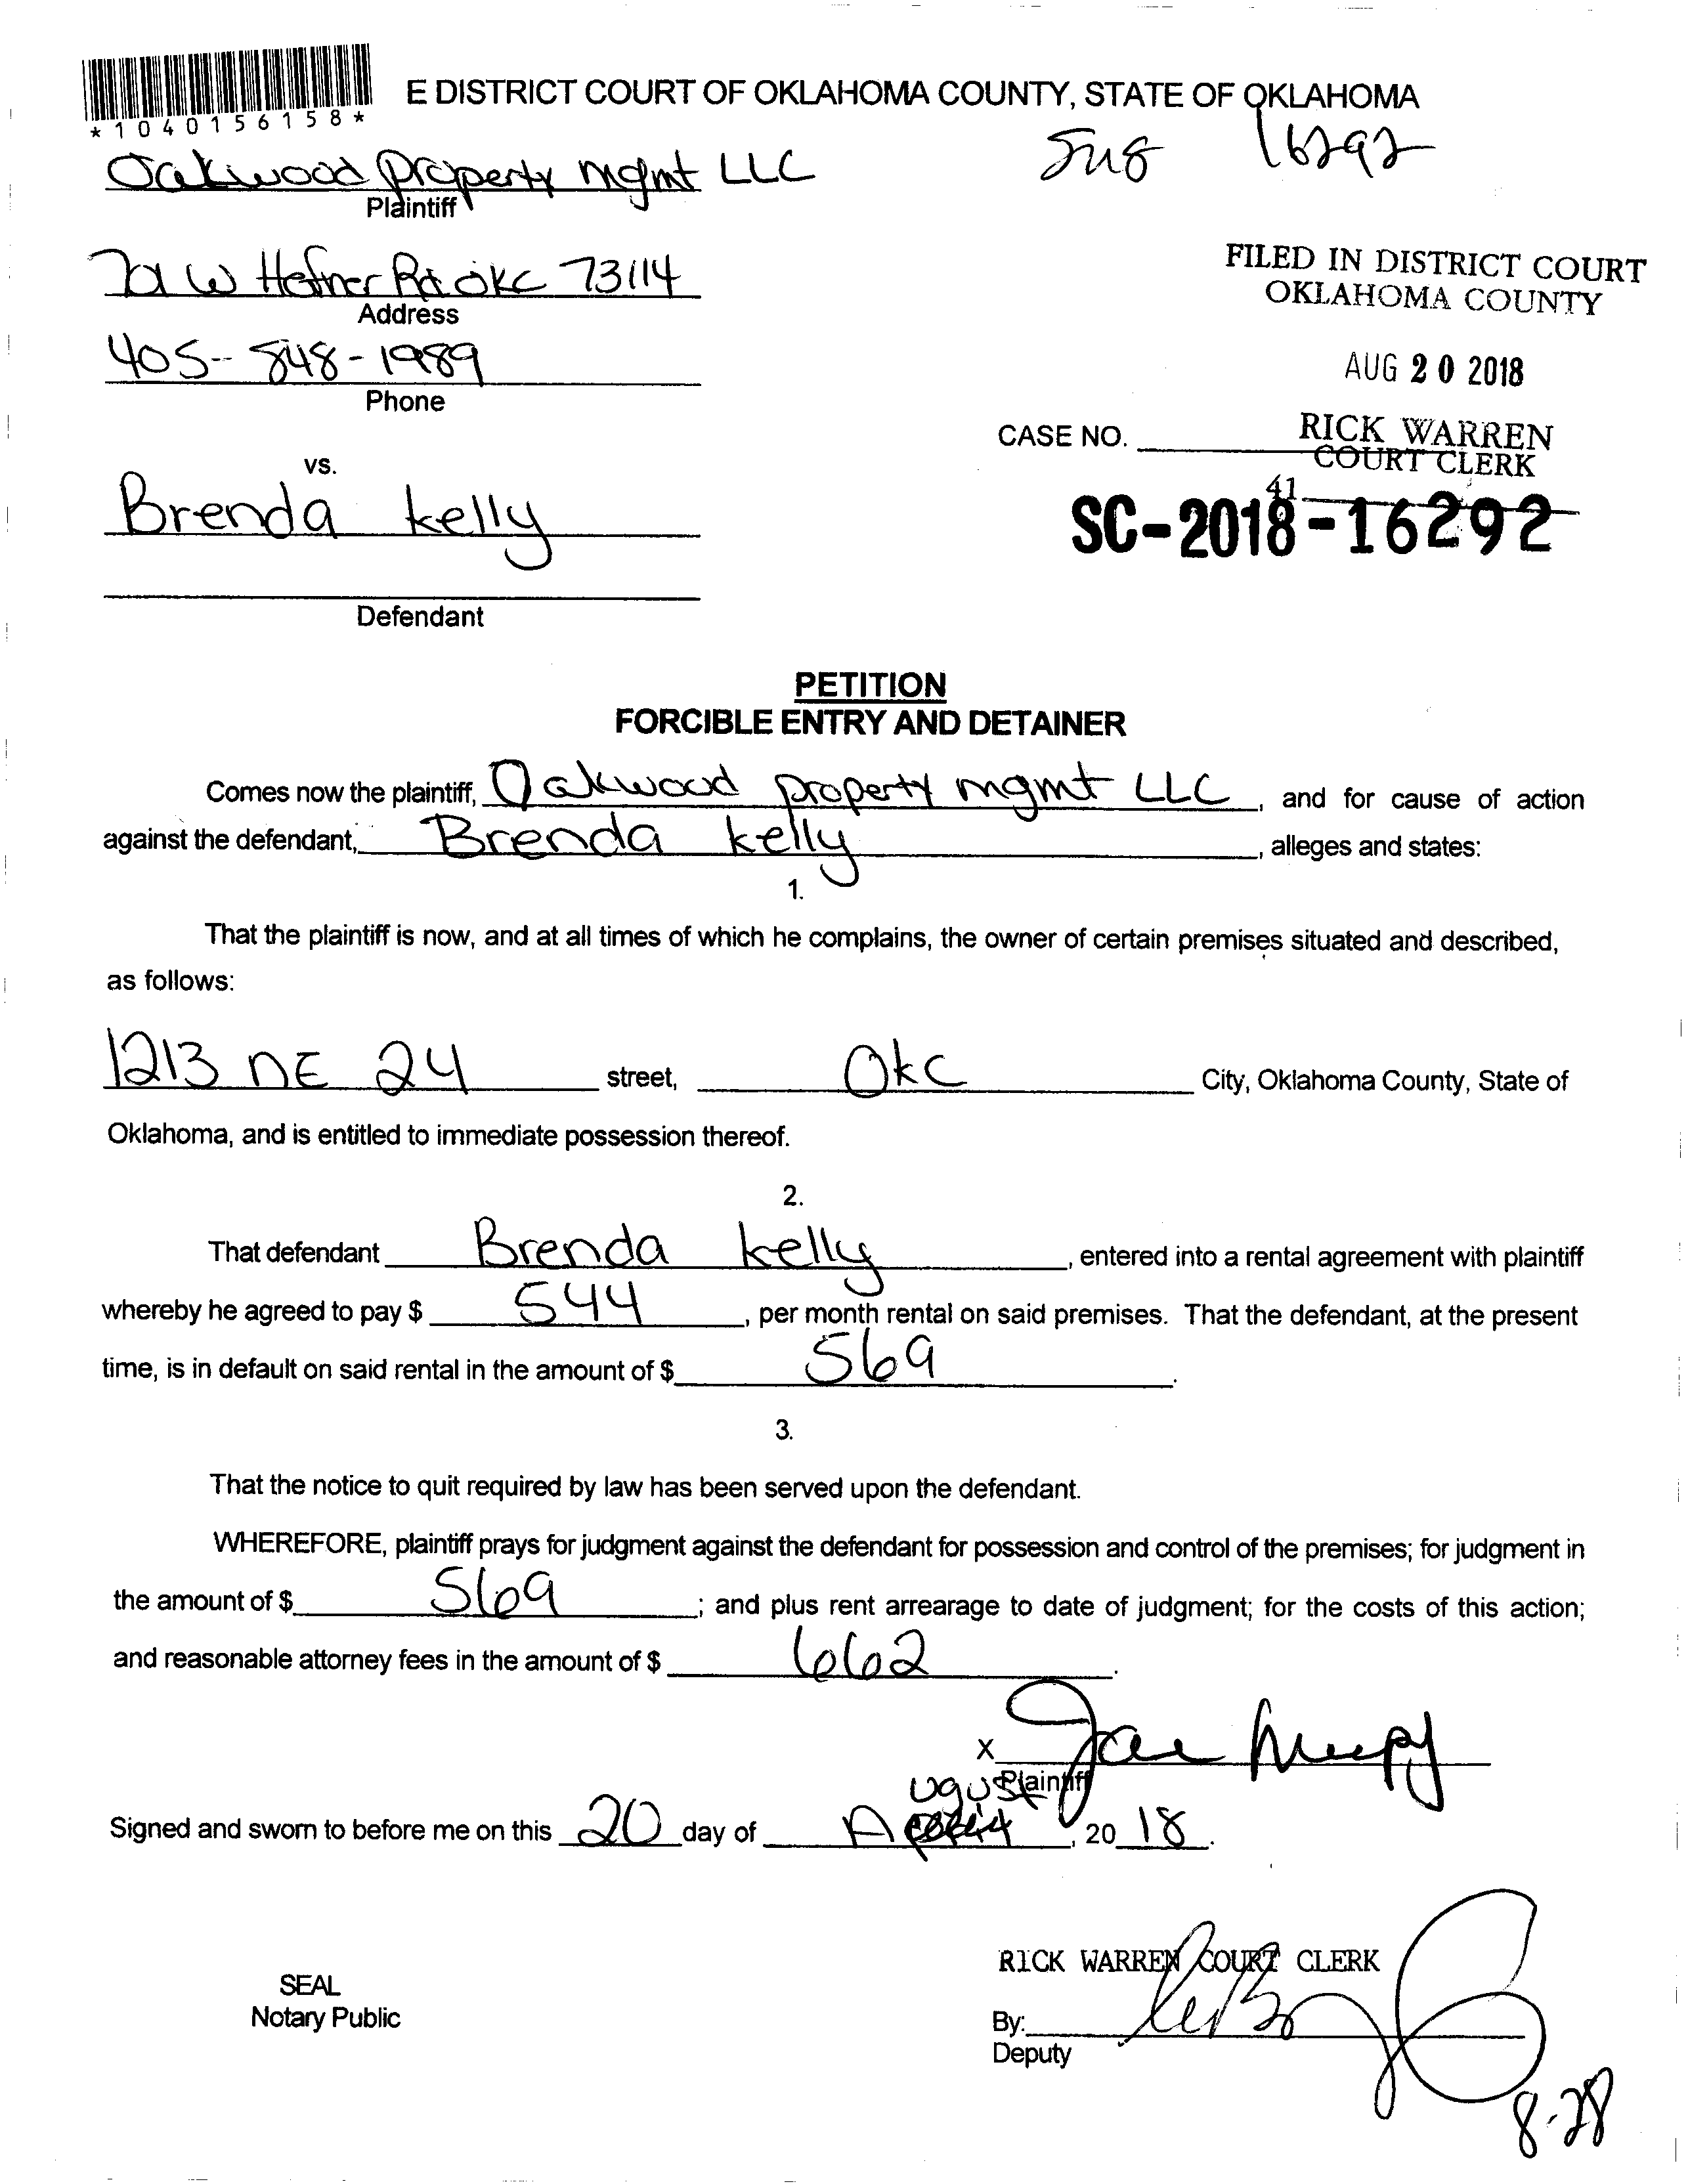 *1040156158*
E DISTRICT COURT OF OKLAHOMA COUNTY, STATE OF OKLAHOMA
16292
Oakwood property mgmt LLC
Plaintiff
701 W Hefner Rd OKC 73114
Address
FILED IN DISTRICT COURT
OKLAHOMA COUNTY
405-848-1989
Phone
AUG 20 2018
CASE NO.
RICK WARREN
COURT CLERK
vs.
41
Brenda kelly
SC-2018-16292
Defendant
PETITION
FORCIBLE ENTRY AND DETAINER
Comes now the plaintiff, Oakwood property mgmt LLC, and for cause of action
against the defendant, Brenda kelly, alleges and states:
1.
That the plaintiff is now, and at all times of which he complains, the owner of certain premises situated and described,
as follows:
1213 NE 24 street, OKC City, Oklahoma County, State of
Oklahoma, and is entitled to immediate possession thereof.
2.
That defendant Brenda kelly, entered into a rental agreement with plaintiff
whereby he agreed to pay $ 544, per month rental on said premises. That the defendant, at the present
time, is in default on said rental in the amount of $ 569.
3.
That the notice to quit required by law has been served upon the defendant.
WHEREFORE, plaintiff prays for judgment against the defendant for possession and control of the premises; for judgment in
the amount of $ 569; and plus rent arrearage to date of judgment; for the costs of this action;
and reasonable attorney fees in the amount of $ 662.
X
Plaintiff
Signed and sworn to before me on this 20 day of August, 2018.
RICK WARREN COURT CLERK
SEAL
Notary Public
By:
Deputy
8-28